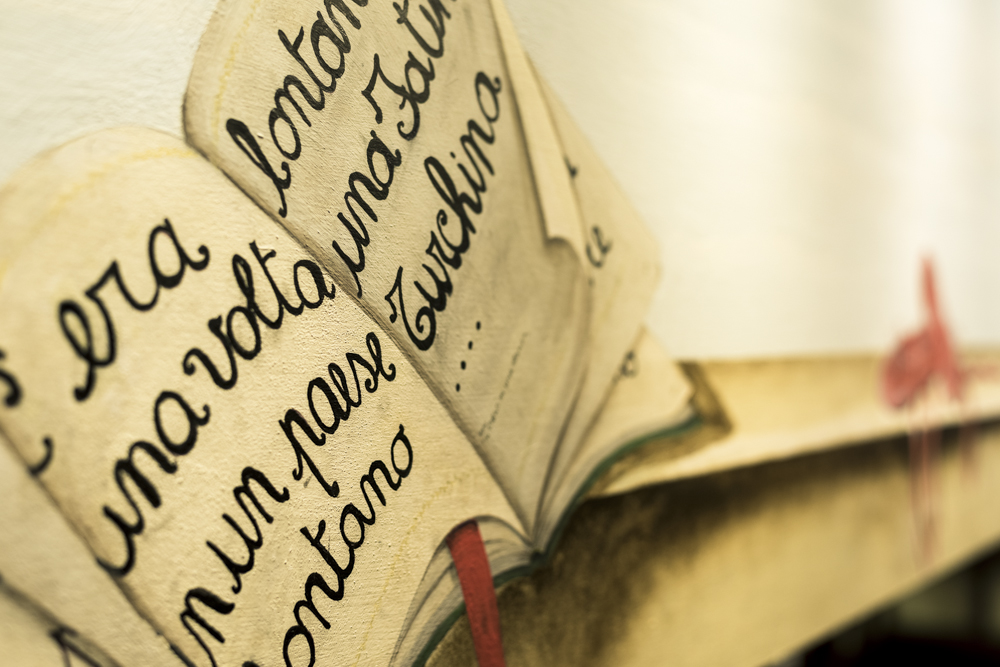 era
una volta
n un paese
lontano
lontan
una Fatin
Turchina
...